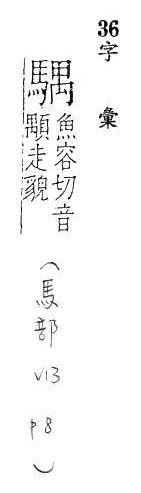 36字彙
魚容切音
顒走貌
(馬部 V13 P8)